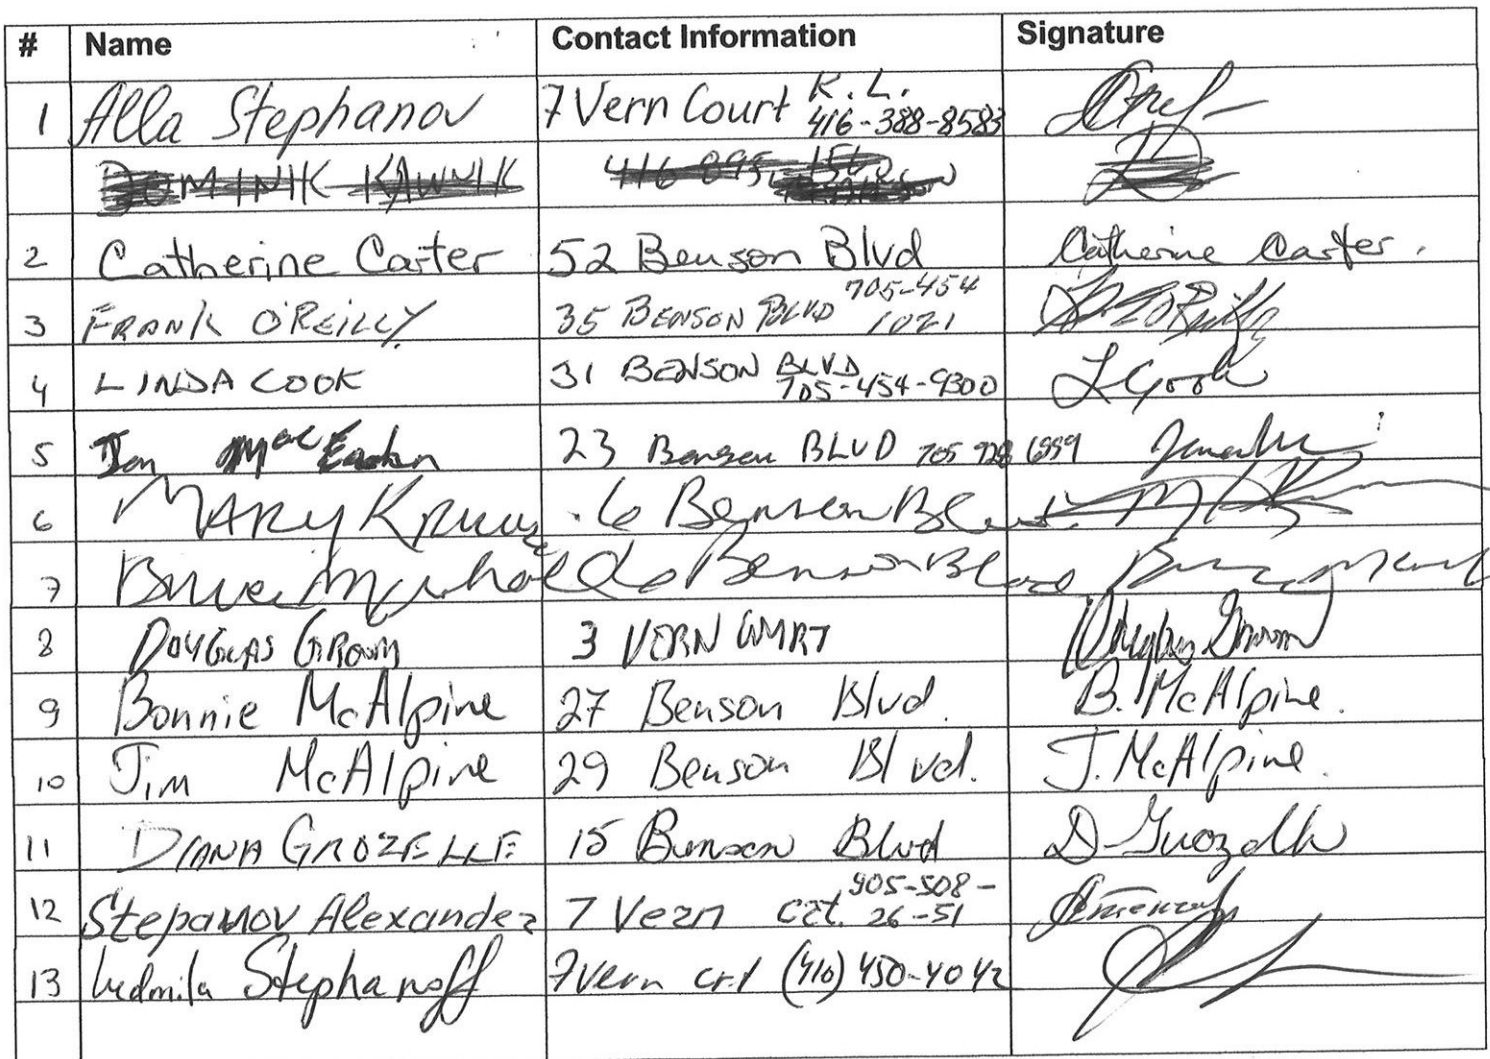 # Name Contact Information Signature
1 Alla Stephanov 7 Vern Court R.L. 416-388-8583
DOMINIK 416
2 Catherine Carter 52 Benson Blvd Catherine Carter.
3 FRANK O'REILLY 35 BENSON BLVD 705-454 1021
4 LINDA COOK 31 BENSON BLVD 705-454-9300 L Cook
5 23 Benson BLVD 705
6 MARY 6 Benson
7 Bruce Benson
8 DOUGLAS GROOM 3 VERN COURT Douglas Groom
9 Bonnie McAlpine 27 Benson Blvd. B. McAlpine.
10 Jim McAlpine 29 Benson Blvd. J. McAlpine.
11 DIANA GROZELLE 15 Benson Blvd D Grozelle
12 Stepanov Alexander 7 Vern crt. 905-508-26-51
13 Ludmila Stephanoff 7 Vern crt (416) 450-4042